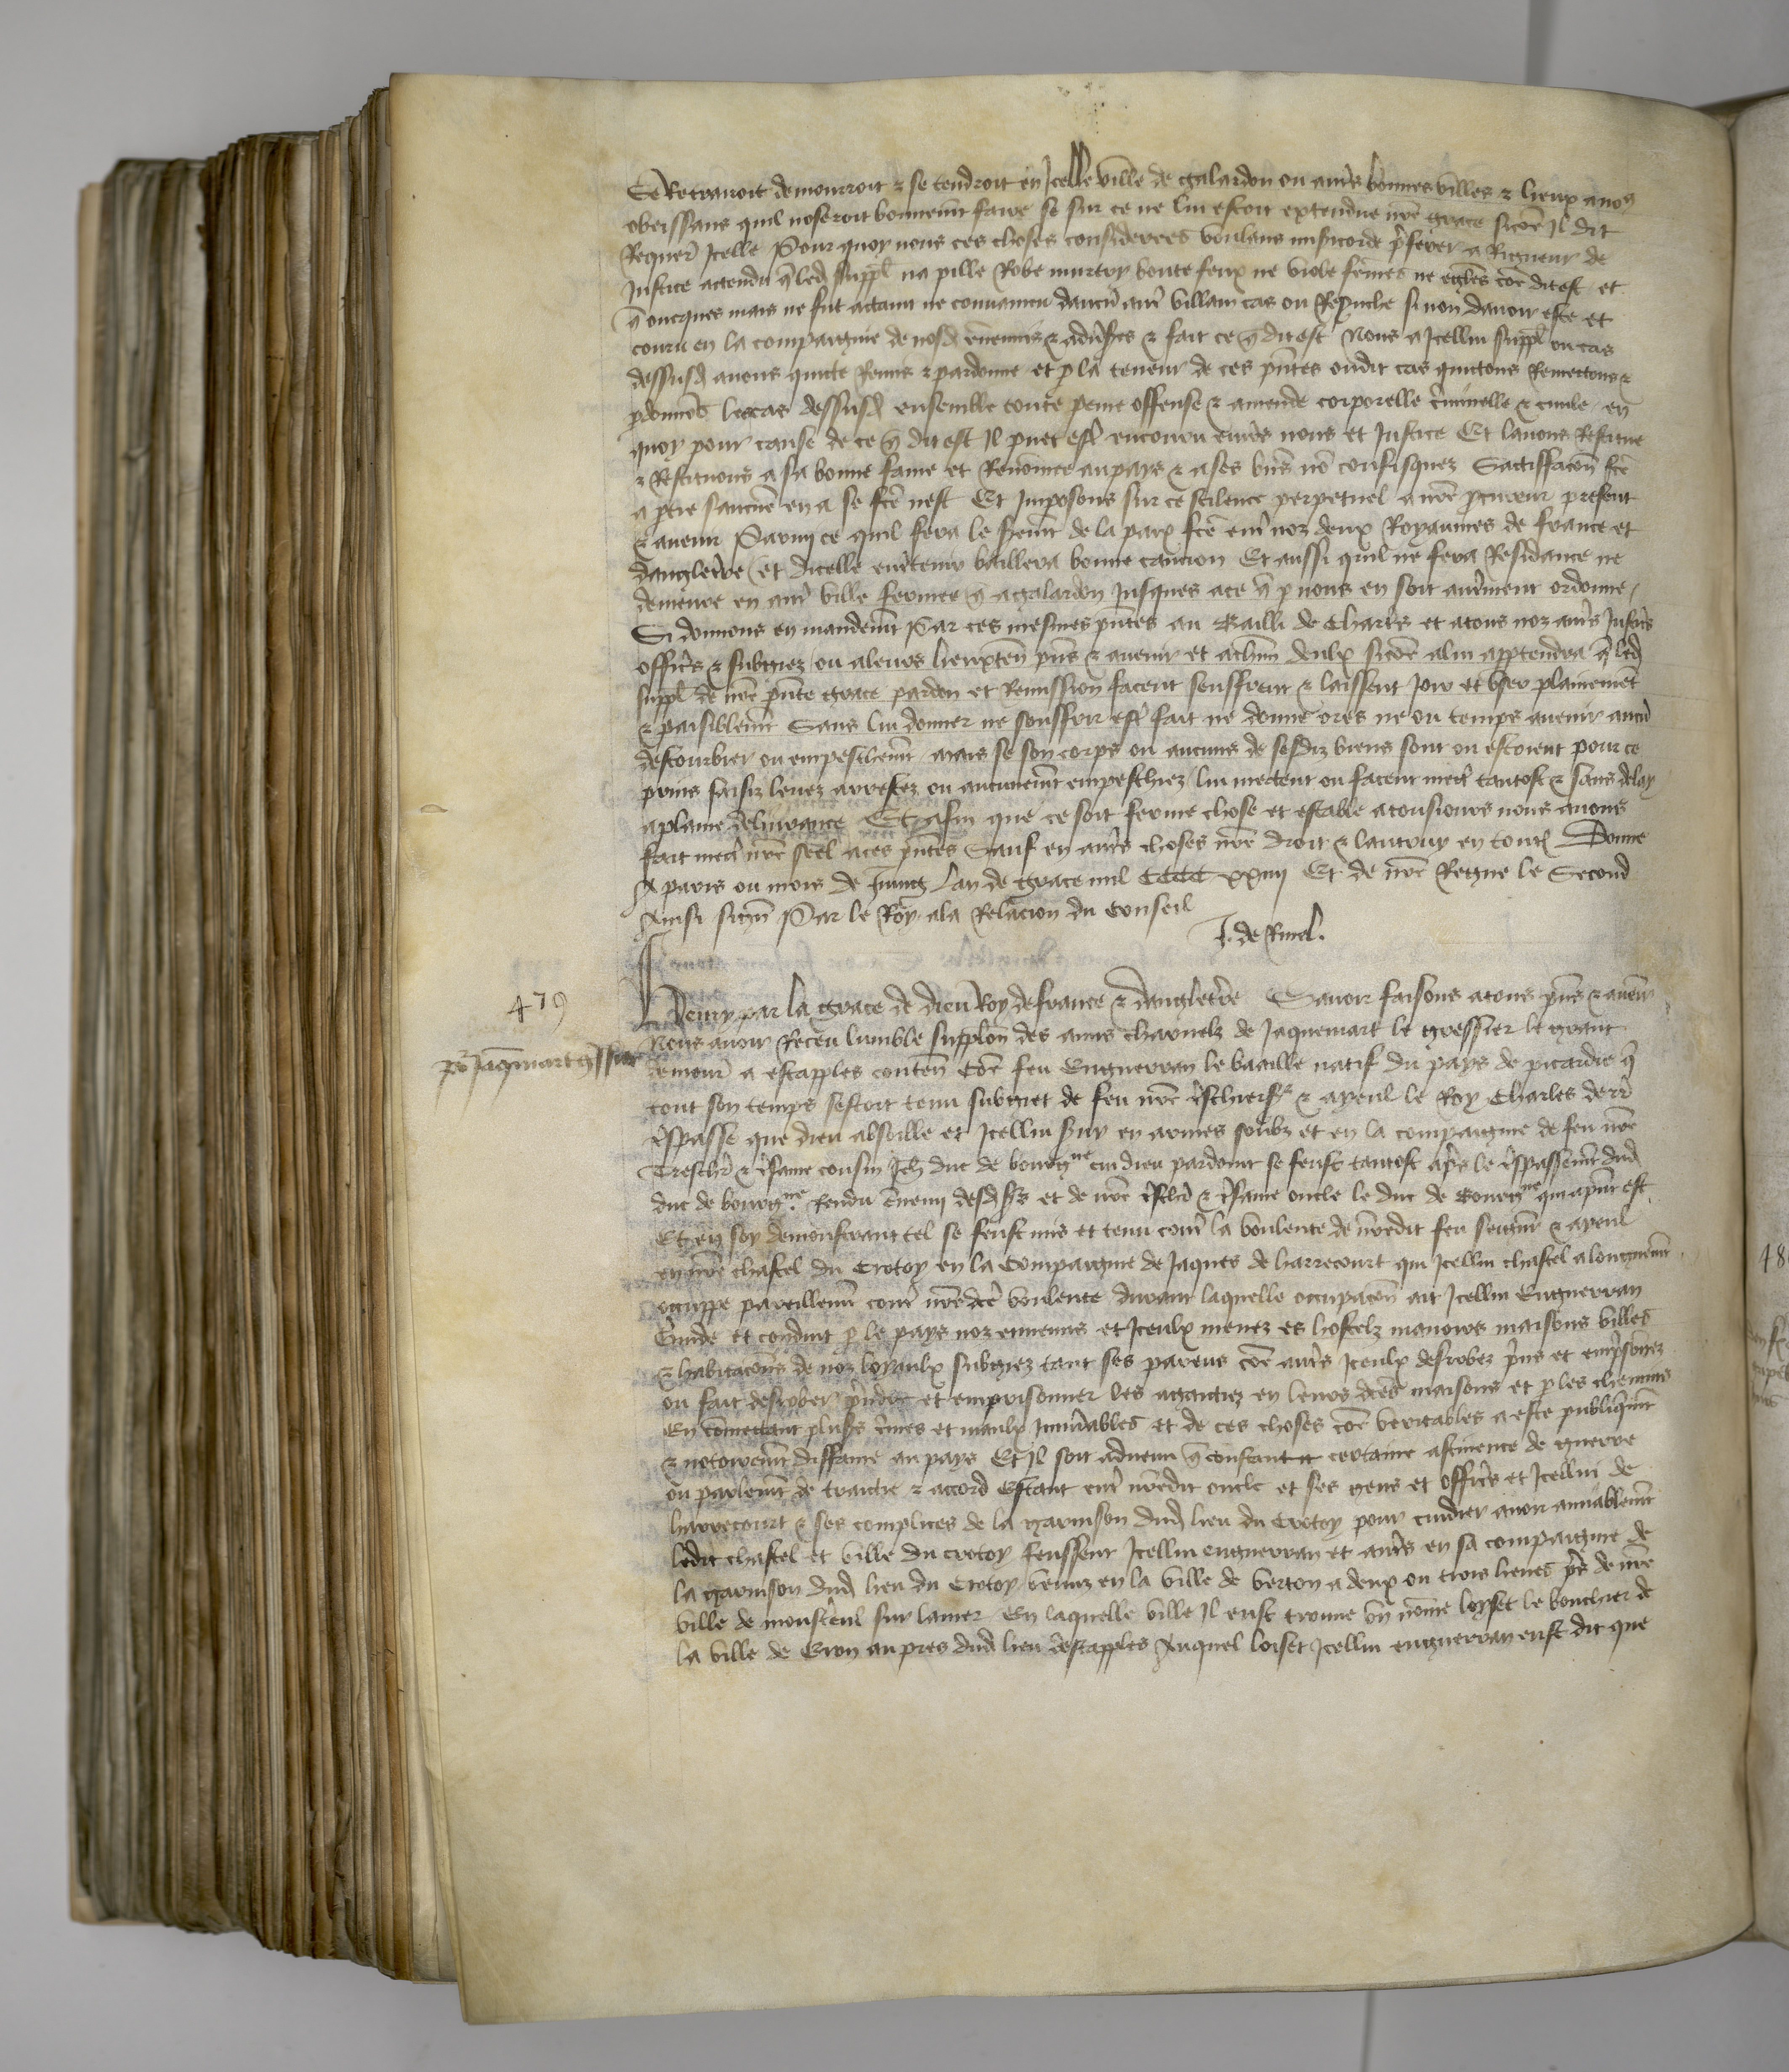 Se Retrairoit demourroit & se tendroit en Icelle ville de galardon ou autrs bonnes villes & lieux a nous
obeissans quil noseroit bonnemt faire se sur ce ne lui estoit extendue nre grace sicoe Il dit
Requert Icelle Pour quoy nous ces choses considerees voulans misicorde pferer a Rigueur de
Justice attendu q led suppl na pille Robe murtry boute feux ne viole femes ne eglises coe dit est et
q oncques mais ne fut attaint ne convaincu daucu autr villain cas ou Reprouche si non davoir este et
couru en la compaignie de nosd ennemis & advsres & fait ce q dit est Nous a Icellui suppl ou cas
dessusd avons quitte Remis & pardonne et p la teneur de ces pntes oudit cas quittons Remettons &
pdonnos le cas dessusd ensemble toute peine offense & amende corporelle criminelle & civile en
quoy pour cause de ce q dit est Il puet estr encouru envers nous et Justice Et lavons Restitue
& Restituons a sa bonne fame et Renomee au pays & a ses biens no confisquez Satisffacon fte
a ptie saucune en a se fte nest Et Imposons sur ce scilence perpetuel a nre pcureur present
& avenir Parmi ce quil fera le seremt de la paix fte entr noz deux Royaumes de france et
dangletrre et dicelle entretenir baillera bonne caucion Et aussi quil ne fera Residance ne
demeure en autr ville fermee q a galardon Jusques a ce q p nous en soit autrement ordonne
Si donnons en mandemt Par ces mesmes pntes au Bailli de Chartrs et a tous noz autrs Justicrs
officrs & subgiez ou a leurs lieuxten pns & avenir et a chun deulx sicoe a lui apptendra q led
suppl de nre pnte grace pardon et Remission facent seuffrent & laissent Joir et user plainement
& paisiblemt Sans lui donner ne souffrir estr fait ne donne ores ne ou temps avenir aucu
destourbier ou empeschemt mais se son corps ou aucuns de sesdiz biens sont ou estoient pour ce
prins saisiz levez arrestez ou aucunemt empeschiez lui mettent ou facent mettr tantost & sans delay
a plaine delivrance Et afin que ce soit ferme chose et estable a tousiours nous avons
fait mettr nre seel a ces pntes Sauf en autrs choses nre droit & lautruy en toutes Donne
A paris ou mois de Juing Lan de grace mil CCCC xxiiij Et de nre Regne le Second
Ainsi sign Par le Roy a la Relacion du Conseil
J. de Rinel.
479
Henry par la grace de dieu Roy de france & dangletrre Savoir faisons a tous pns & avenir
Nous avoir Receu lumble supplon des amis charnelz de Jaquemart le gressier
demour a estapples conten coe feu Enguerran le vaaille natif du pays de picardie q
tout son temps sestoit tenu subgiet de feu nre trschiersr & ayeul le Roy Charles derr
trspasse que dieu absoille et Icellui suy en armes soubz et en la compaignie de feu nre
Treschr & trsame cousin Jeh duc de bourgne cui dieu pardoint se feust tantost aprs le trspassemt dud
duc de bourgne Rendu ennemi desds srs et de nre trschr & trsame oncle le duc de Bourgne qui a pnt est
Et en soy demonstrant tel se feust mis et tenu contr la voulente de nredit feu seignr & ayeul
en nre chastel du Crotoy en la Compaignie de Jaques de harrecourt qui Icellui chastel a longuemt
occuppe pareillemt contr nredte voulente durant laquelle occupacon ait Icellui Enguerran
Guide et conduit p le pays noz ennemis et Iceulx menez es hostelz manoirs maisons villes
& habitacons de noz loyaulx subgiez tant ses parens coe autrs Iceulx desrobez prins et emprsonez
ou fait desrober prndre et emprisonner les agaitiez en leurs dtes maisons et p les chemins
En comettant plusrs crimes et maulx Innudables et de ces choses coe veritables a este publiqmt
& notoiremt diffame au pays Et Il soit advenu q constant certaine astinence de guerre
ou parlemt de traictie & accord Estant entr nredit oncle et ses gens et officrs et Icellui de
harrecourt & ses complices de la garnison dud lieu du Crotoy pour cuidier avoir amiablemt
ledit chastel et ville du crotoy feussent Icellui enguerran et autrs en sa compaignie de
la garnison dud lieu du Crotoy venuz en la ville de verton a deux ou trois lieues prs de nre
ville de monstreul sur la mer En laquelle ville Il eust trouve un nome loyset le bouchier de
la ville de Eron au pres dud lieu destapples Auquel loiset Icellui enguerran eust dit que